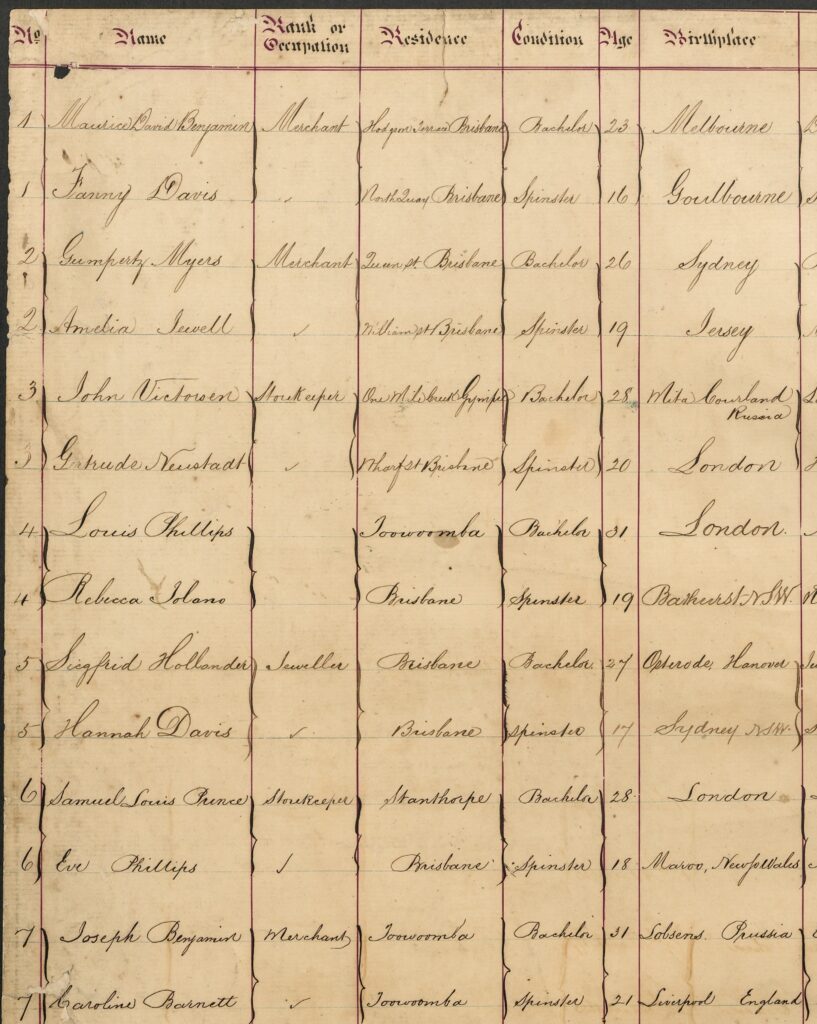 No Name Rank or Occupation Residence Condition Age Birthplace
1 Maurice David Benjamin Merchant Hodgson Terrace Brisbane Bachelor 23 Melbourne
1 Fanny Davis North Quay Brisbane Spinster 16 Goulbourne
2 Gumpertz Myers Merchant Queen St. Brisbane Bachelor 26 Sydney
2 Amelia Jewell William St Brisbane Spinster 19 Jersey
3 John Victorsen Storekeeper One Mile Creek Gympie Bachelor 28 Mita Courland
Russia
3 Gertrude Neustadt Wharf St Brisbane Spinster 20 London
4 Louis Phillips Toowoomba Bachelor 31 London.
4 Rebecca Solano Brisbane Spinster 19 Bathurst N.S.W.
5 Siegfrid Hollander Jeweller Brisbane Bachelor. 27 Osterode, Hanover
5 Hannah Davis Brisbane Spinster 17 Sydney N.S.W.
6 Samuel Louis Prince Storekeeper Stanthorpe Bachelor 28 London
6 Eve Phillips Brisbane Spinster 18 Maroo, New So Wales
7 Joseph Benjamin Merchant Toowoomba Bachelor 31 Lobsens. Prussia
7 Caroline Barnett Toowoomba Spinster 21 Liverpool England